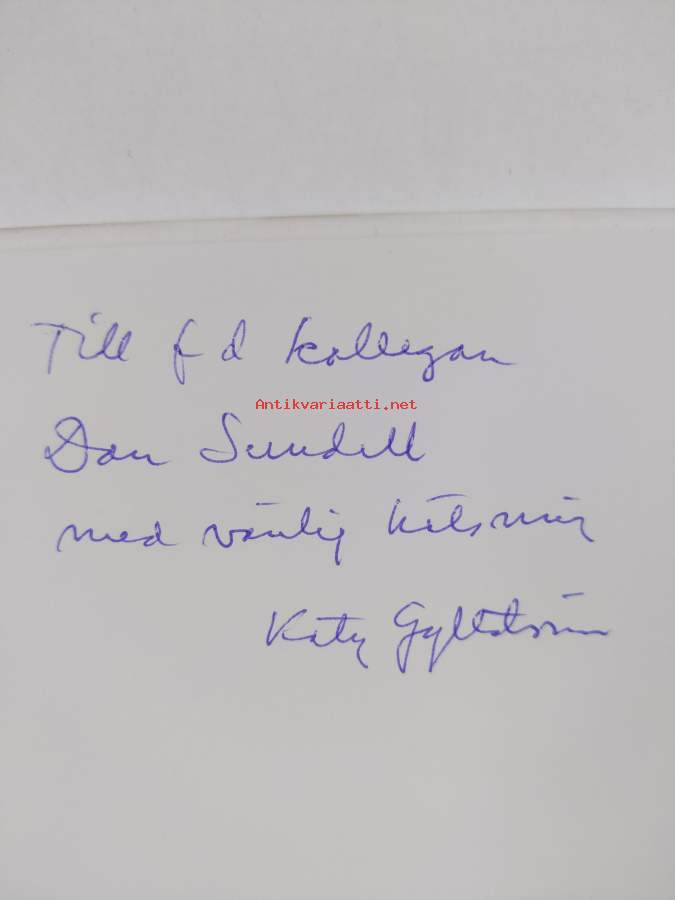 Till f d kollegan
Antikvariaatti.net
Dan Sundell
med vänlig hälsning
Katy Gyllström